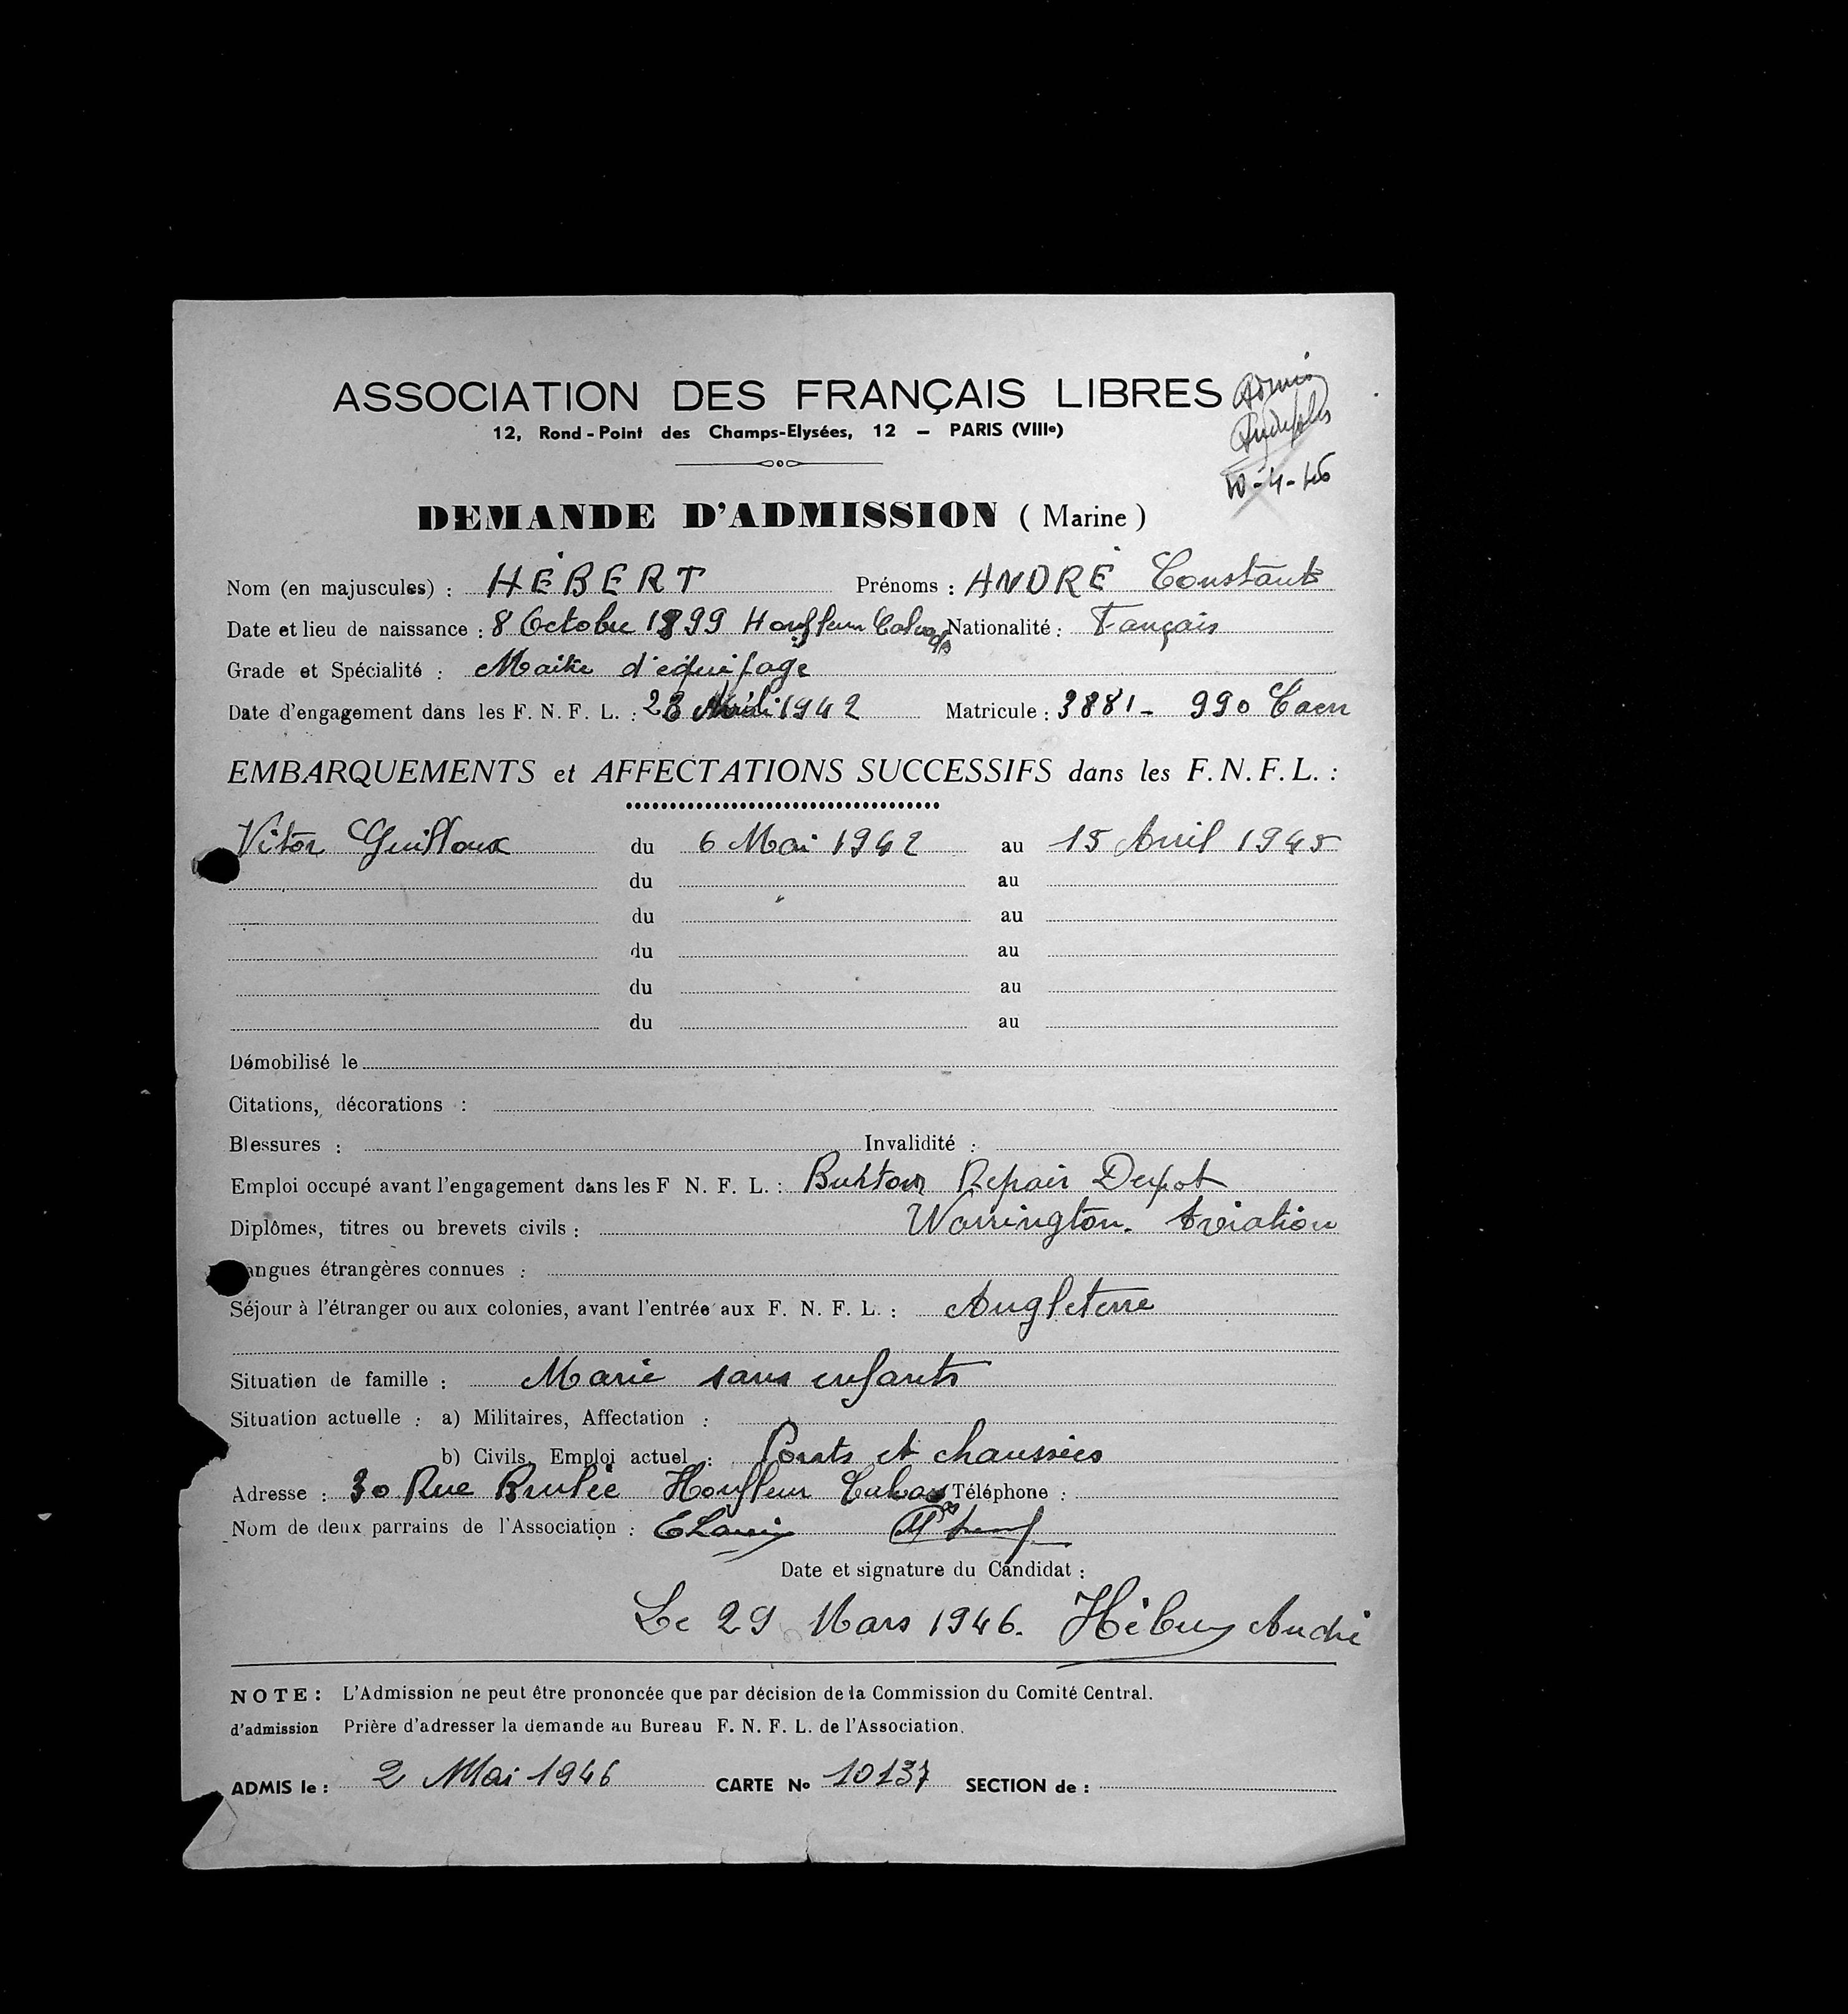 ASSOCIATION DES FRANÇAIS LIBRES
12, Rond-Point des Champs-Elysées, 12 — PARIS (VIIIe)
Admis
10-4-46
DEMANDE D'ADMISSION (Marine)
Nom (en majuscules) : HÉBERT Prénoms : ANDRÉ Constant
Date et lieu de naissance : 8 Octobre 1899 Honfleur Calvados Nationalité : Français
Grade et Spécialité : Maitre d'équipage
Date d'engagement dans les F. N. F. L. : 23 Avril 1942 Matricule : 3881 - 990 Caen
EMBARQUEMENTS et AFFECTATIONS SUCCESSIFS dans les F. N. F. L. :
Vitor Guilloux du 6 Mai 1942 au 15 Avril 1945
du au
du au
du au
du au
du au
Démobilisé le
Citations, décorations :
Blessures : Invalidité :
Emploi occupé avant l'engagement dans les F N. F. L. : Repair Depot
Diplômes, titres ou brevets civils : Warrington. Aviation
angues étrangères connues :
Séjour à l'étranger ou aux colonies, avant l'entrée aux F. N. F. L. : Angleterre
Situation de famille : Marié sans enfants
Situation actuelle : a) Militaires, Affectation :
b) Civils, Emploi actuel : Ponts et chaussées
Adresse : 30 Rue Brulée Honfleur Calvados Téléphone :
Nom de deux parrains de l'Association :
Date et signature du Candidat :
Le 29 Mars 1946. Hébert André
NOTE : L'Admission ne peut être prononcée que par décision de la Commission du Comité Central.
d'admission Prière d'adresser la demande au Bureau F. N. F. L. de l'Association.
ADMIS le : 2 Mai 1946 CARTE No 10137 SECTION de :